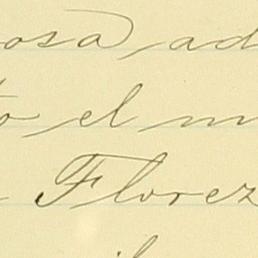 osa ad
to el m
Florez